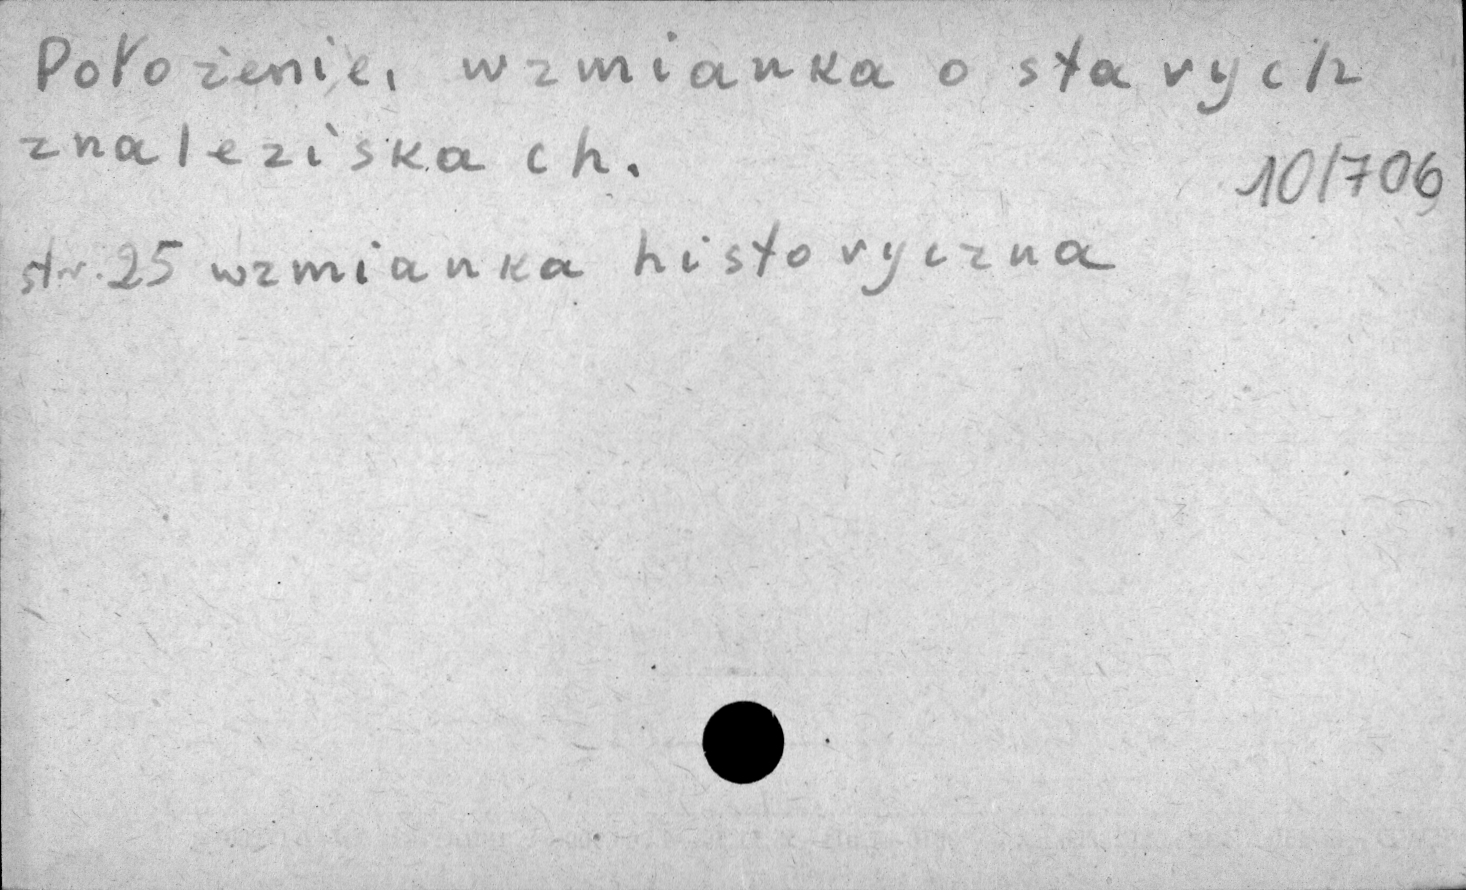 Położenie, wzmianka o starych
znaleziskach.
10/706
str. 25 wzmianka historyczna